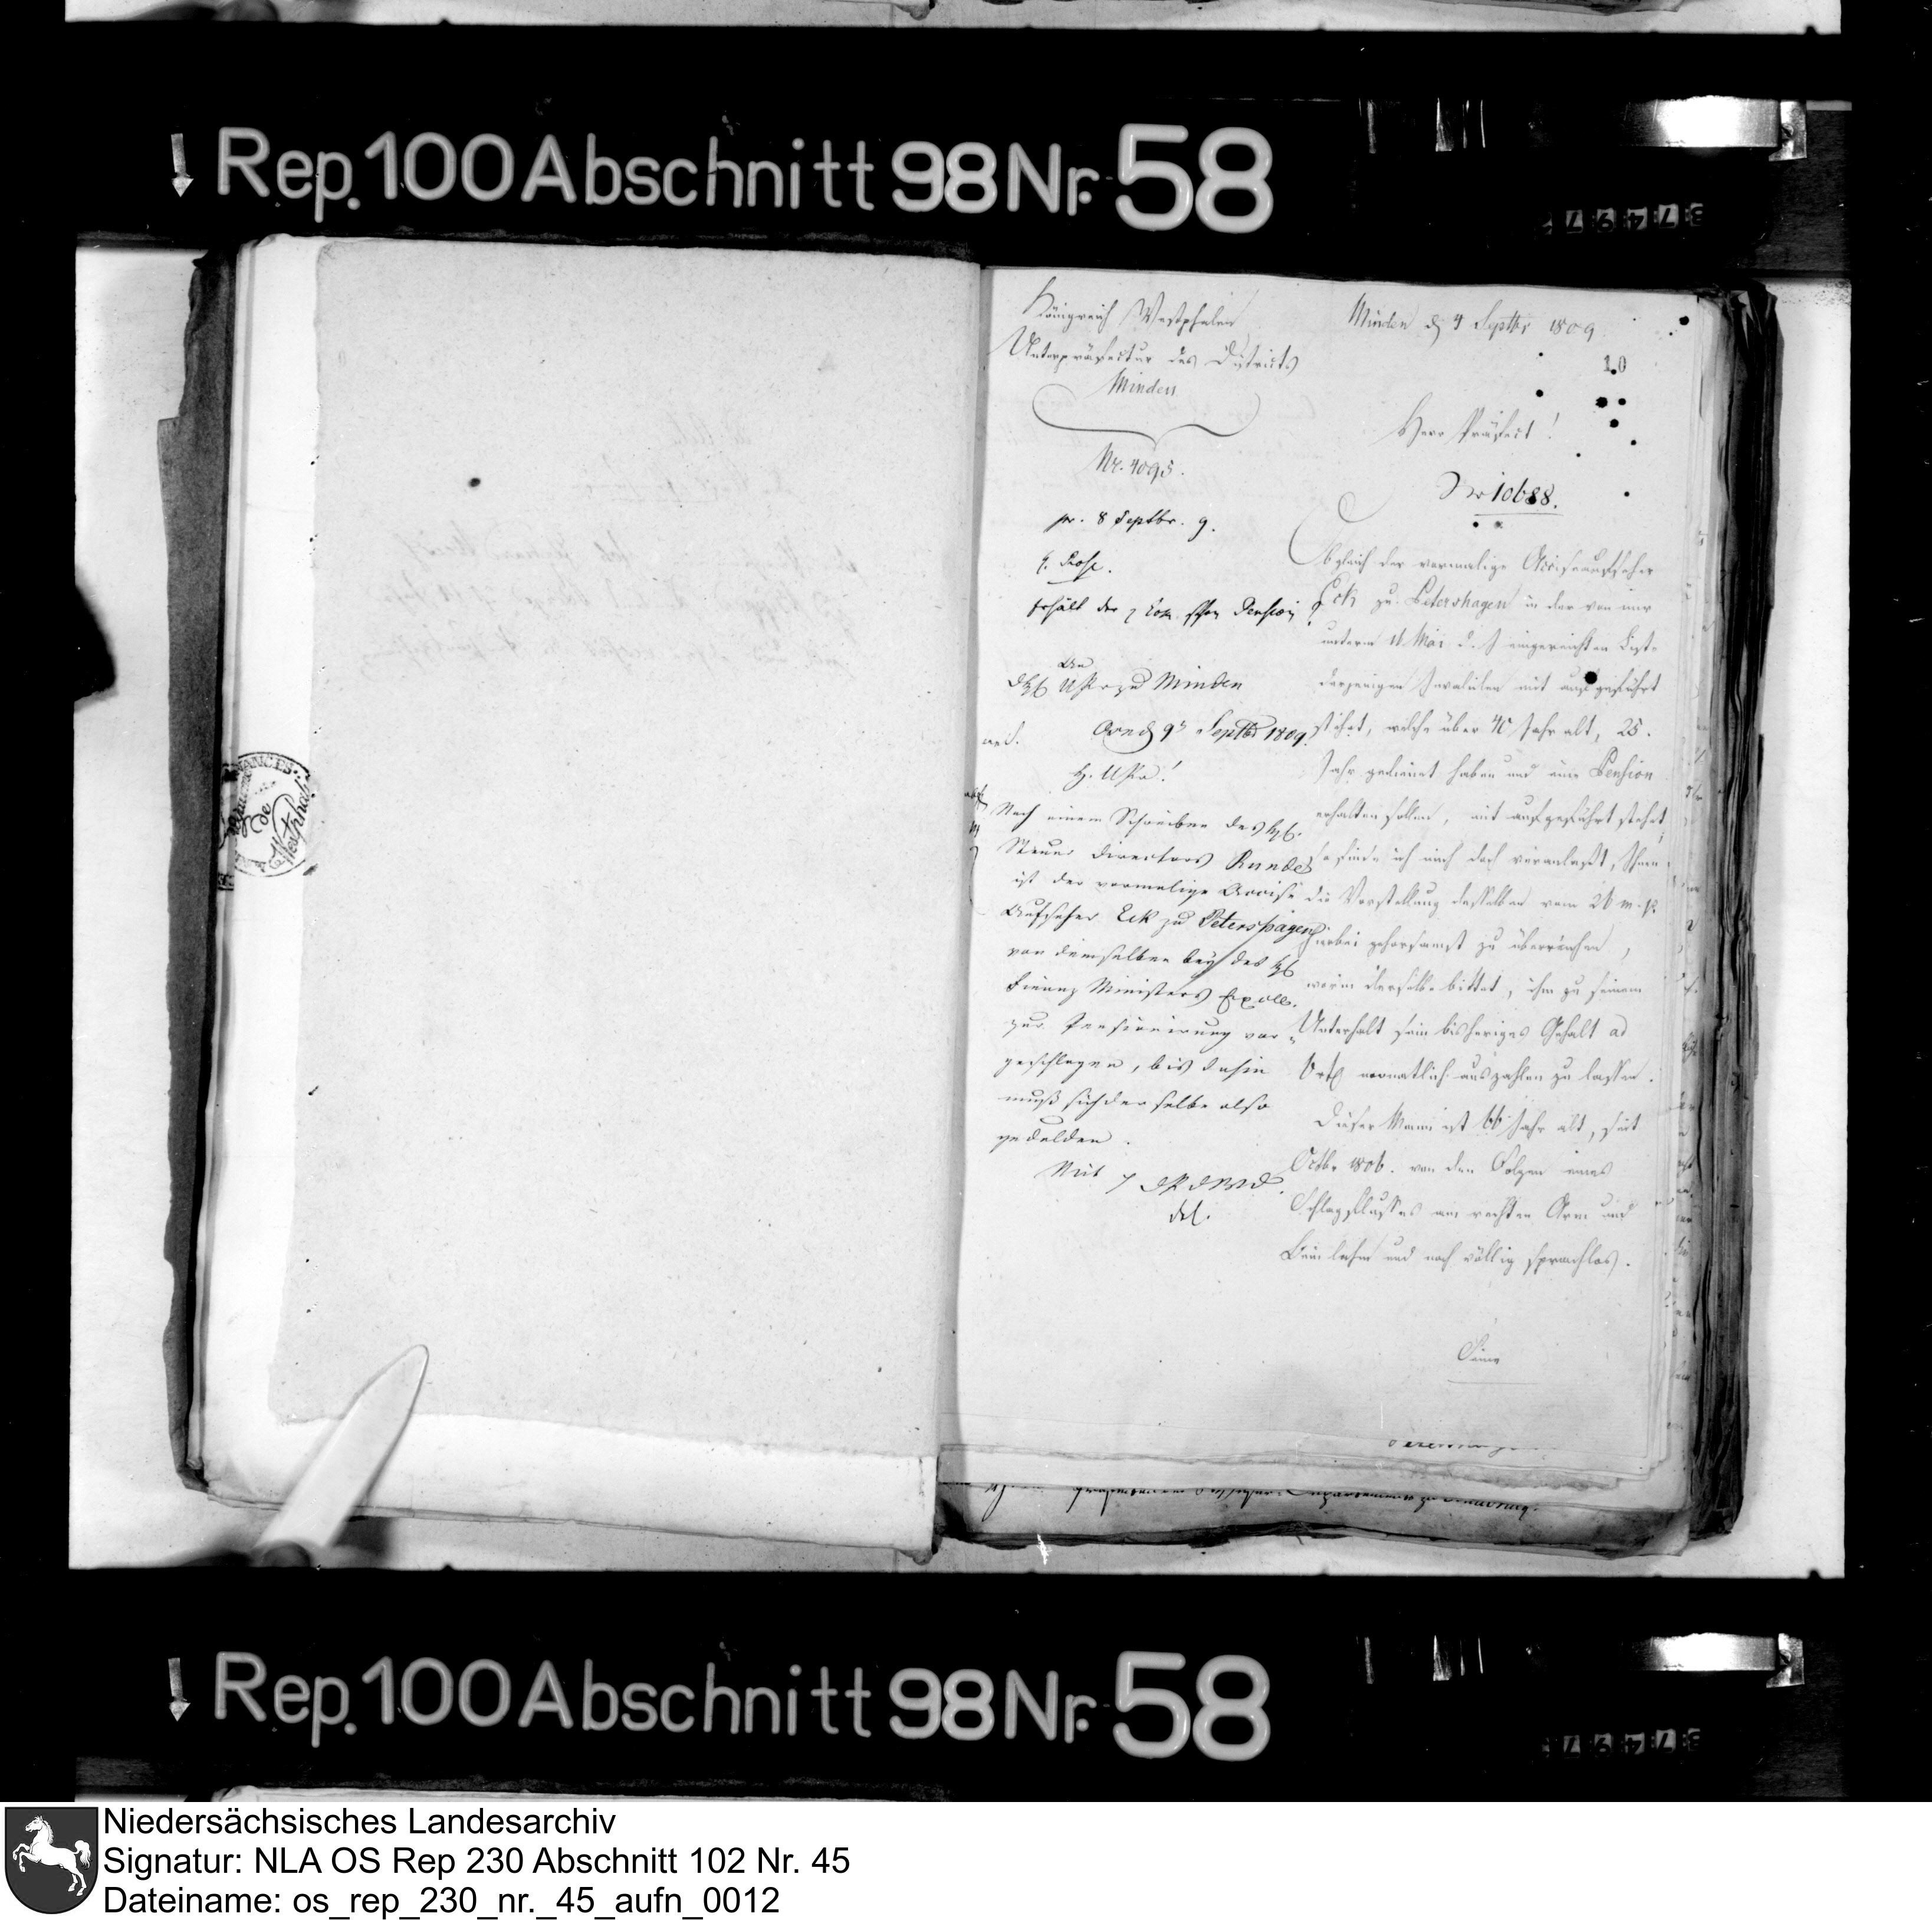 Rep. 100 Abschnitt 98 Nr. 58
Königreich Westphalen
Unterpräfectur des Districts
Minden
Nr. 4095.
pr. 8 Septbr. 9.
Erhält der Pension
An
UPr zu Minden
9ⁿ Septbr 1809.
H. UPr!
Nach einem Schreiben des H.
Steuer Directors Runde
ist der vormalige Accise
Aufseher Eck zu Petershagen
von demselben bey des H
Finanz Ministers Excell.
zur Pensionirung vor
geschlagen, bis dahin
muß sich derselbe also
gedulden.
Minden d 4 Septbr 1809
10
Herr Präfect!
Nr 10688.
Obgleich der vormalige Acciseaufseher
Eck zu Petershagen in der von mir
unterm 11 Mai d. J eingereichten Liste
derjenigen Invaliden mit aufgeführt
stehet, welche über 40 Jahr alt, 25.
Jahr gedienet haben und eine Pension
erhalten sollen, mit aufgeführt stehet,
so finde ich mich doch veranlaßt, Ihnen
die Vorstellung desselben vom 26 m. p.
hiebei gehorsamst zu überreichen,
worin derselbe bittet, ihm zu seinem
Unterhalt sein bisheriges Gehalt ad
monatlich auszahlen zu lassen.
Dieser Mann ist 66 Jahr alt, seit
Octbr 1806. von den Folgen eines
Schlagflusses am rechten Arm und
Bein lahm und noch völlig sprachlos.
Seine
Rep. 100 Abschnitt 98 Nr. 58
Niedersächsisches Landesarchiv
Signatur: NLA OS Rep 230 Abschnitt 102 Nr. 45
Dateiname: os_rep_230_nr._45_aufn_0012